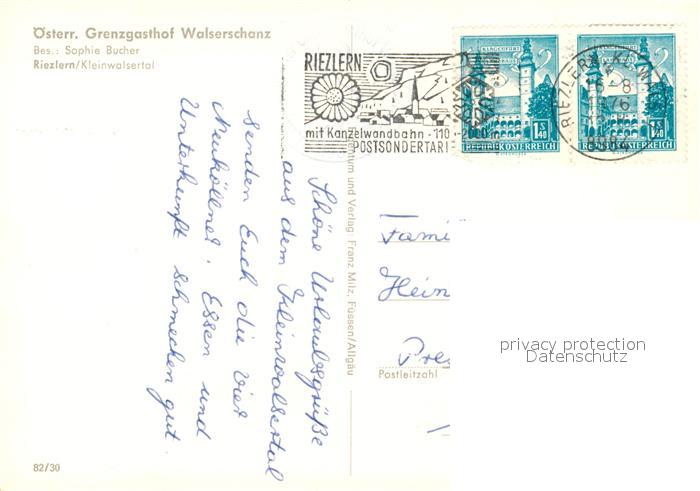 Österr. Grenzgasthof Walserschanz
Bes.: Sophie Bucher
Riezlern/Kleinwalsertal
RIEZLERN
mit Kanzelwandbahn - 110
2000 m
POSTSONDERTARI
KLAGENFURT
S 1.40
REPUBLIK ÖSTERREICH
S 1.40
REPUBLIK ÖSTERREICH
RIEZLERN
Schöne Urlaubsgrüße
aus dem Kleinwalsertal
senden Euch die vier
Neuköllner. Essen und
Unterkunft schmecken gut.
und Verlag: Franz Milz, Füssen/Allgäu
Fami
Hein
Postleitzahl
privacy protection
Datenschutz
82/30